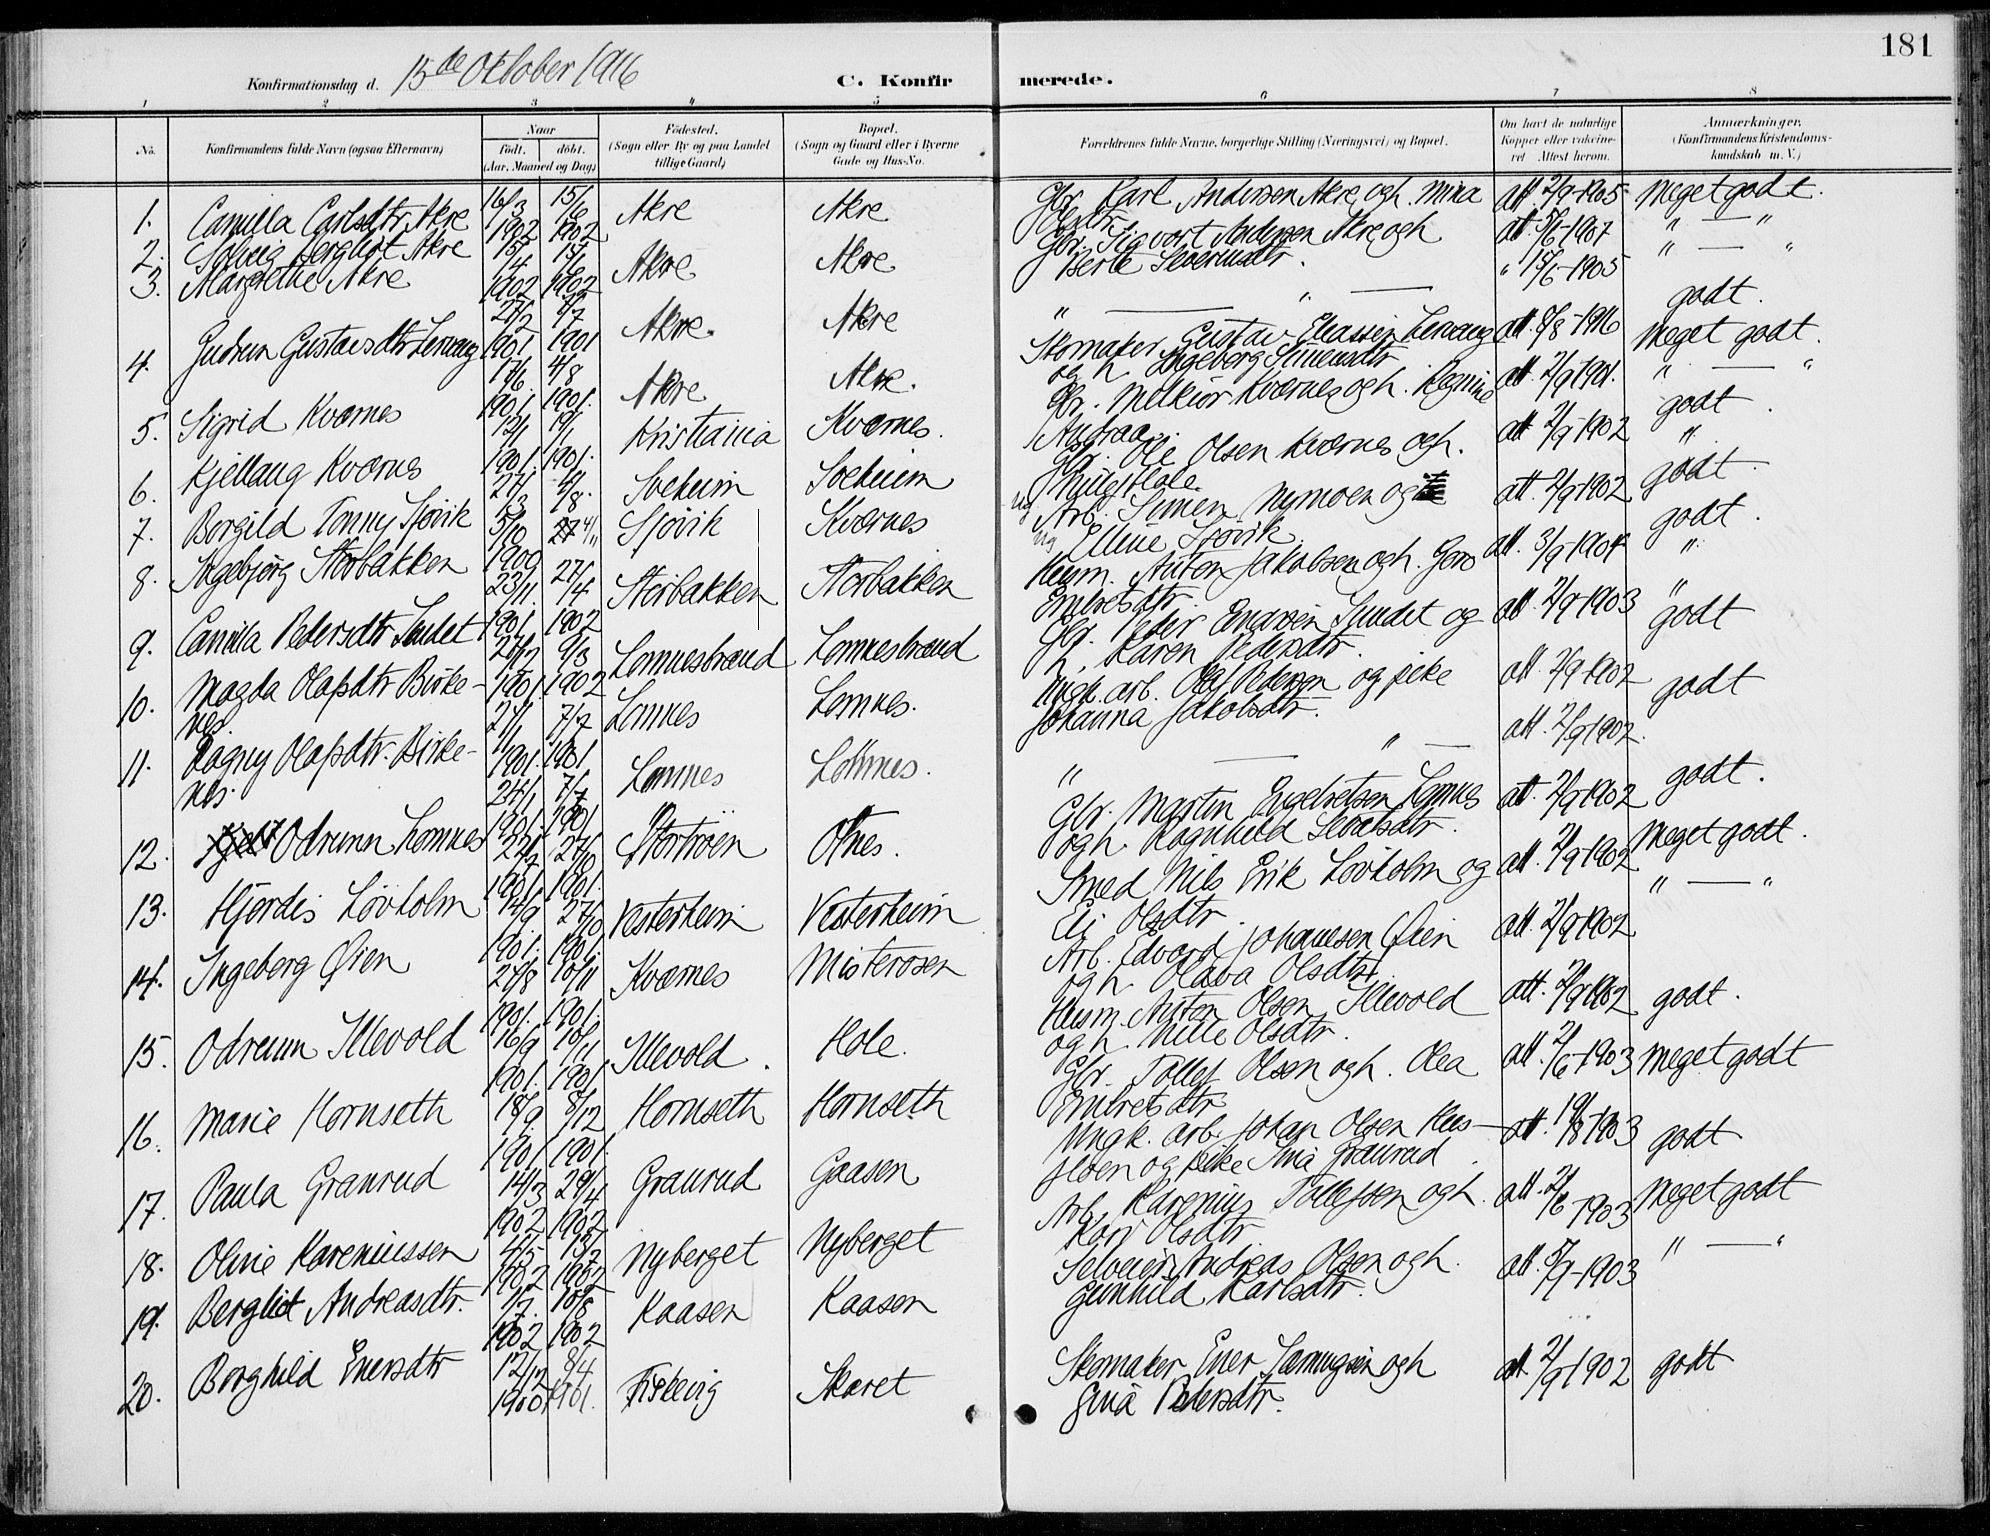 181
Konfirmationsdag d. 15de Oktober 1916
C. Konfirmerede.
1 2 3 4 5 6 7 8
No.
Konfirmandens fulde Navn (ogsaa Efternavn)
Naar
födt. döbt.
(Aar, Maaned og Dag)
Födested.
(Sogn eller By og paa Landet
tillige Gaard)
Bopæl.
(Sogn og Gaard eller i Byerne
Gade og Hus-No.
Forældrenes fulde Navne, borgerlige Stilling (Næringsvei) og Bopæl.
Om havt de naturlige
Kopper eller vakcine-
ret Attest herom.
Anmærkninger,
(Konfirmandens Kristendoms-
kundskab m. V.)
1. Camilla Carlsdtr Akre 16/3 1902 15/6 1902 Akre Akre Gbr. Karl Andersen Akre og h. Mina att. 2/9-1905 Meget godt.
2. Solveig Bergliot Akre 15/4 1902 15/6 1902 Akre Akre Gbr. Sigvort Andersen Akre og h. att. 5/6-1907 " — "
Berte Severinsdtr.
3. Margrethe Akre 27/2 1901 1901 Akre. Akre " — " — " 15/6-1905 " — "
godt.
4. Gudrun Gustavsdtr 17/6 1901 4/8 1901. Akre Akre. Skomaker Gustav Eliassen att. 8/8-1916 Meget godt.
og h. Ingeborg Simensdtr
5. Sigrid Kværnes 12/1 1901. 19/1 1901. Kristiania Kværnes. Gbr. Melkior Kværnes og h. Regine att. 2/9 1901. " — "
godt.
6. Kjellaug Kværnes 27/1 Soeheim Soeheim Gbr. Ole Olsen Kværnes og h. att 2/9-1902 "
7. Borgild Tonny Sjøvik 5/10 1900 Sjövik Kværnes Arb. Simen Nymoen og att. 2/9 1902 godt.
Elline Sjøvik.
8. Ingebjørg Storbakken 23/11. 1901. 27/4 1902 Storbakken Storbakken Husm. Anton Jakobsen og h. Goro att. 3/9-1904 godt.
Embretsdtr.
9. Camilla Pedersdtr Sundet 1901. 9/3 1902 Lomnesstrand Lomnesstrand Gbr. Peder Sundet og att 2/9-1903 "
h. Karen Pedersdtr. godt
10. Magda Olafsdtr Birke- 21/1 1901. 7/7 1901 Lomnes Lomnes. Ungk. arb. Olaf Pedersen og pike att. 2/9-1902 godt
nes. Johanna Jakobsdtr.
11. Dagny Olafsdtr. Birke- 24/1 1901 7/7 1901 Lomnes Lomnes. " — " — att. 2/9 1902.
nes.
12. Odrunn Lomnes 22/7 1901. 27/10 1901. Stortröen Otnes. Gbr. Martin Engebretsen Lomnes att. 2/9 1902 godt.
og h. Ragnhild Sevalsdtr.
13. Hjørdis Lövholm 14/9 1901. 27/10 1901. Vesterheim Vesterheim Smed Nils Erik Lövholm og att. 2/9-1902 Meget godt.
Eli Olsdtr. " — "
14. Ingeborg Øien 27/8 1901. 10/11 1901. Kværnes Misterosen Arb. Edvard Johansen Øien att. 2/9 1902
og h. Olava Olsdtr
15. Odrunn Illevold 16/9 1901. 10/11 1901 Illevold. Hole. Husm. Anton Olsen Illevold att. 2/9 1902 godt.
og h. Mille Olsdtr.
16. Marie Hornseth 18/9. 1901 8/12 1901. Hornseth Hornseth Gbr. Tollef Olsen og h. Olea att. 2/6-1903 Meget godt
Embretsdtr
17. Paula Granrud 14/3 1902 29/4 1902 Granrud Gaasen Ungk. arb. Johan Olsen Hus- att. 19/8 1903 godt
floen og pike Ina Granrud
18. Oline Kareniussen 4/5 1902 13/7 1902 Nyberget Nyberget Arb. Karenius Tollefsen og h. att. 2/6-1903 Meget godt
Kari Olsdtr
19. Bergliot Andreasdtr. 1/7. 1902 10/8 1902 Kaasen Kaasen Selveier Andreas Olsen og h. att. 5/9-1903 " — "
Gunhild Karlsdtr.
20. Borghild Enersdtr 12/12 1900 8/4 1901. Fiskevig Skaret Skomaker Ener og h. att 2/9 1902 godt
Gina Pedersdtr.